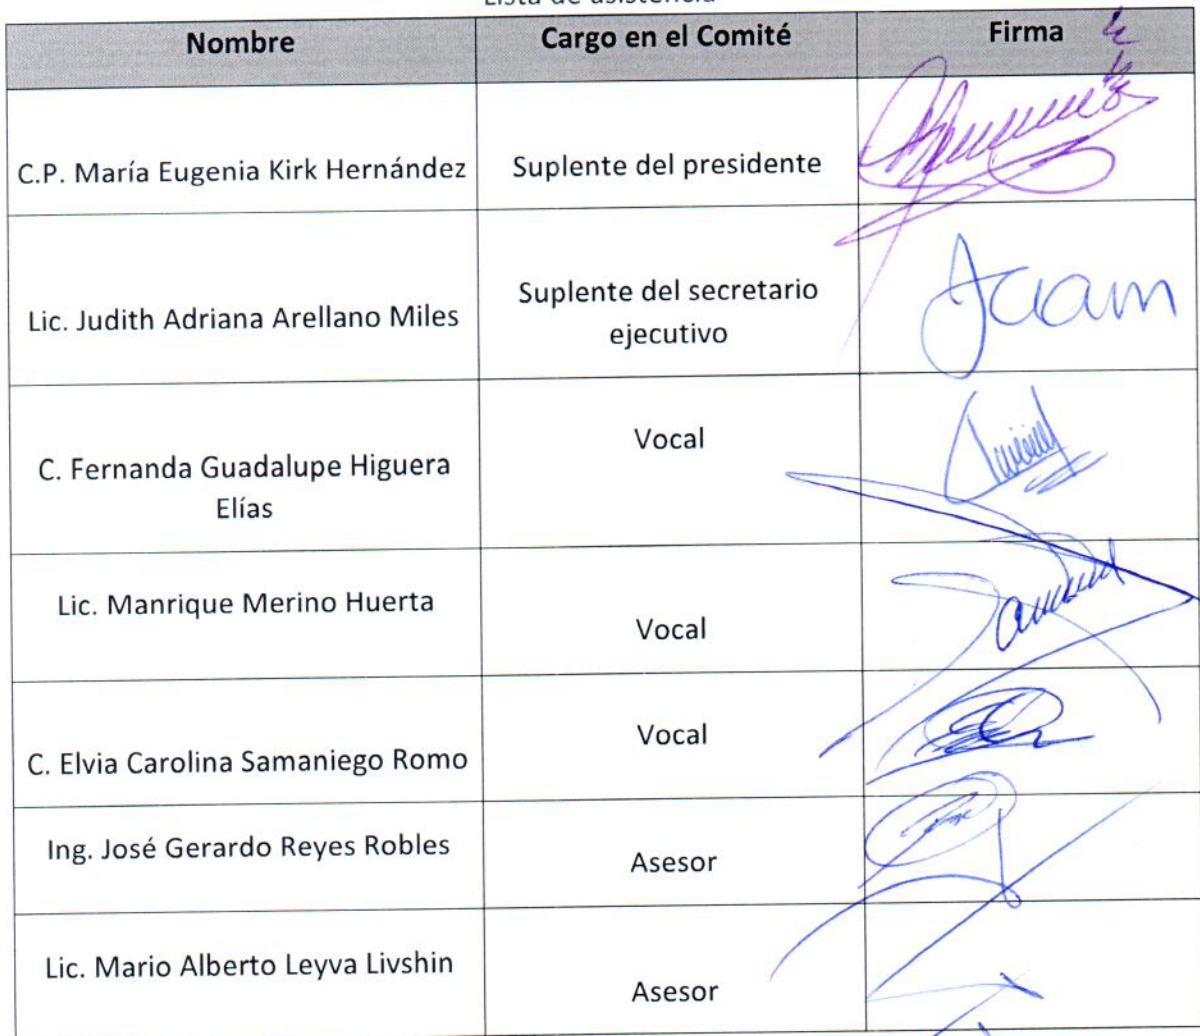 Lista de asistencia
Nombre Cargo en el Comité Firma
C.P. María Eugenia Kirk Hernández Suplente del presidente
Lic. Judith Adriana Arellano Miles Suplente del secretario
ejecutivo
Jaam
C. Fernanda Guadalupe Higuera
Elías
Vocal
Lic. Manrique Merino Huerta
Vocal
C. Elvia Carolina Samaniego Romo
Vocal
Ing. José Gerardo Reyes Robles
Asesor
Lic. Mario Alberto Leyva Livshin
Asesor